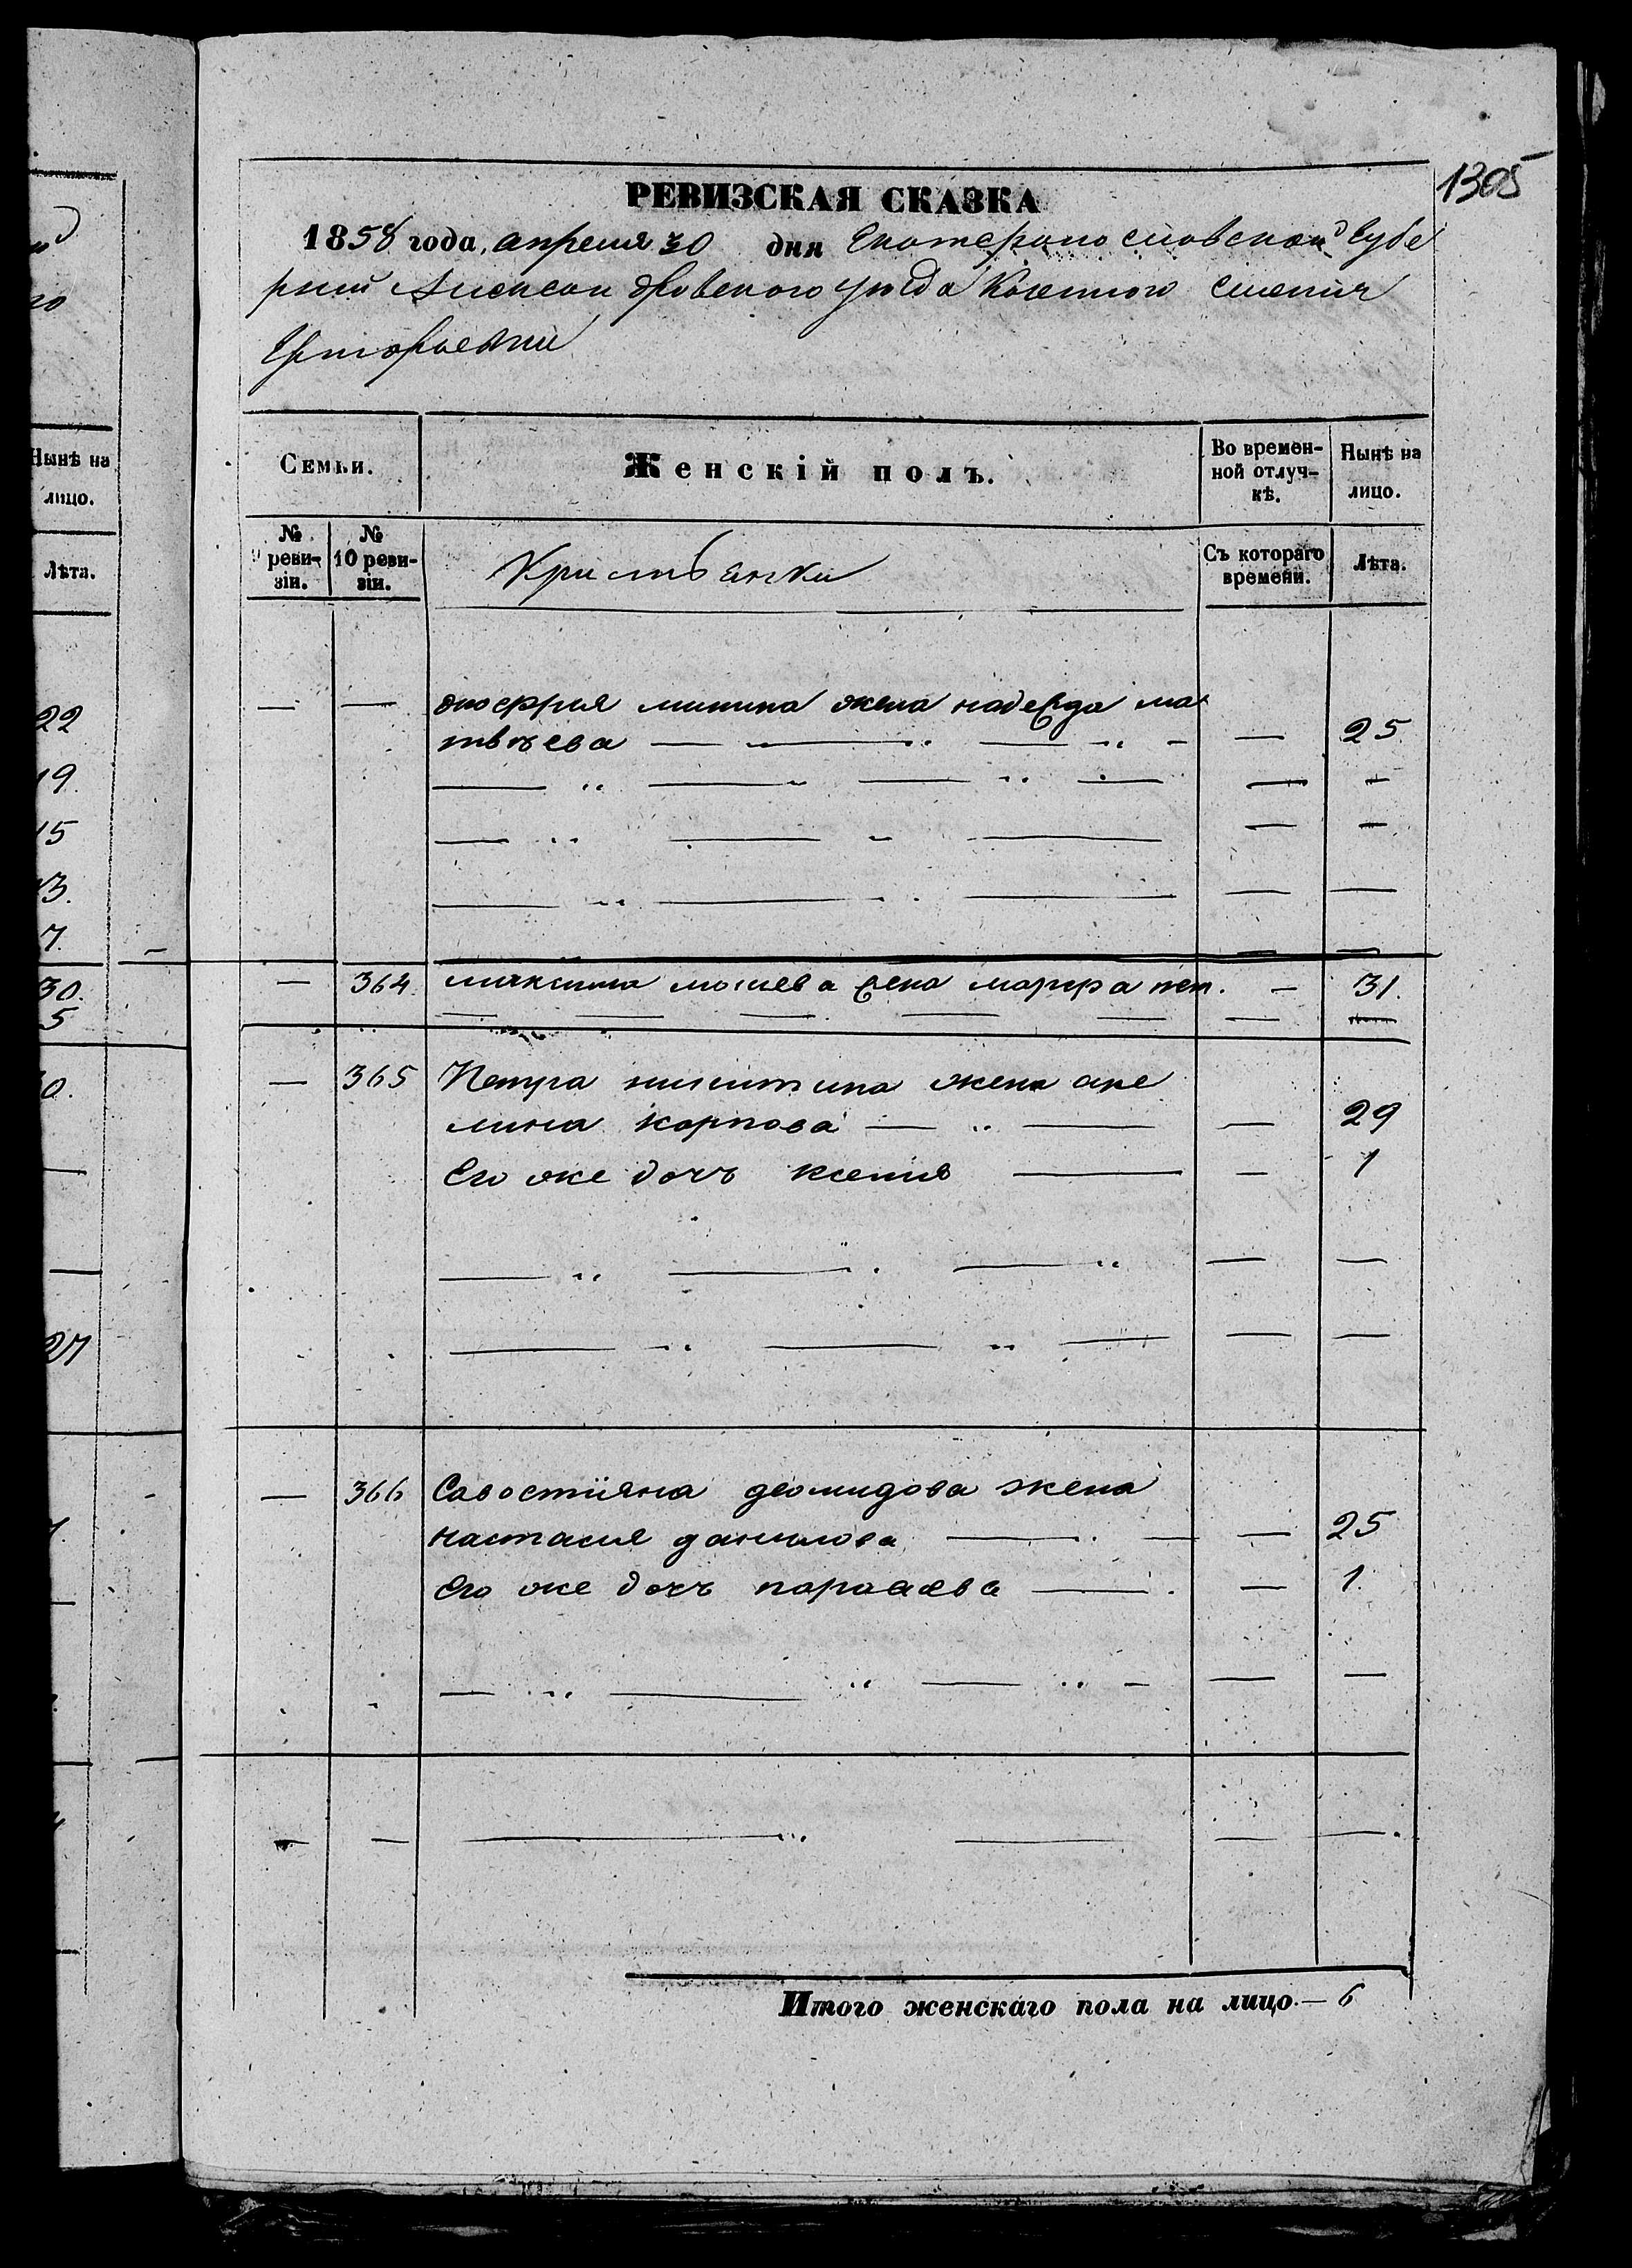 1305
РЕВИЗСКАЯ СКАЗКА
1858 года, апреля 30 дня Екатеринославской Губе
рнии Александровского уезда Казенного Селения
Григорьевки
Нынѣ на
лицо.
Лѣта.
22
19.
15
13.
7.
30.
5
0.
27
Семьи. Женскій полъ. Во времен-
ной отлуч-
кѣ. Нынѣ на
лицо.
№
9 реви-
зіи. №
10 реви-
зіи. Кристьянки Съ котораго
времени. Лѣта.
— — минина жена надежда ма
твѣева — — 25
— 364 максима жена марфа пет. — 31.
— 365 Петра никитина жена аке
лина карпова — — 29
Его же дочь ксения — — 1
— 366 Савостіяна деомидова жена
настасия данилова — — 25
Его же дочь параскева — — 1.
Итого женскаго пола на лицо. — 6